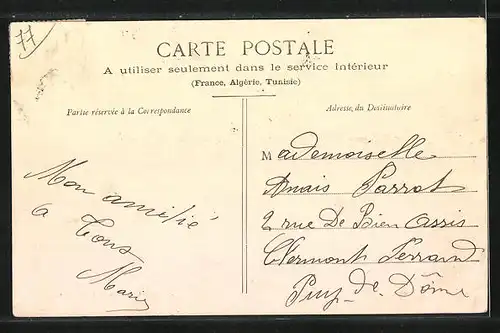 77
CARTE POSTALE
A utiliser seulement dans le service Intérieur
(France, Algérie, Tunisie)
Partie réservée à la Correspondance
Adresse du Destinataire
Mon amitié
a Tous
Marie
Mademoiselle
Anais Parrot
2 rue De Bien Assis
Clermont Ferrand
Puy-de-Dôme